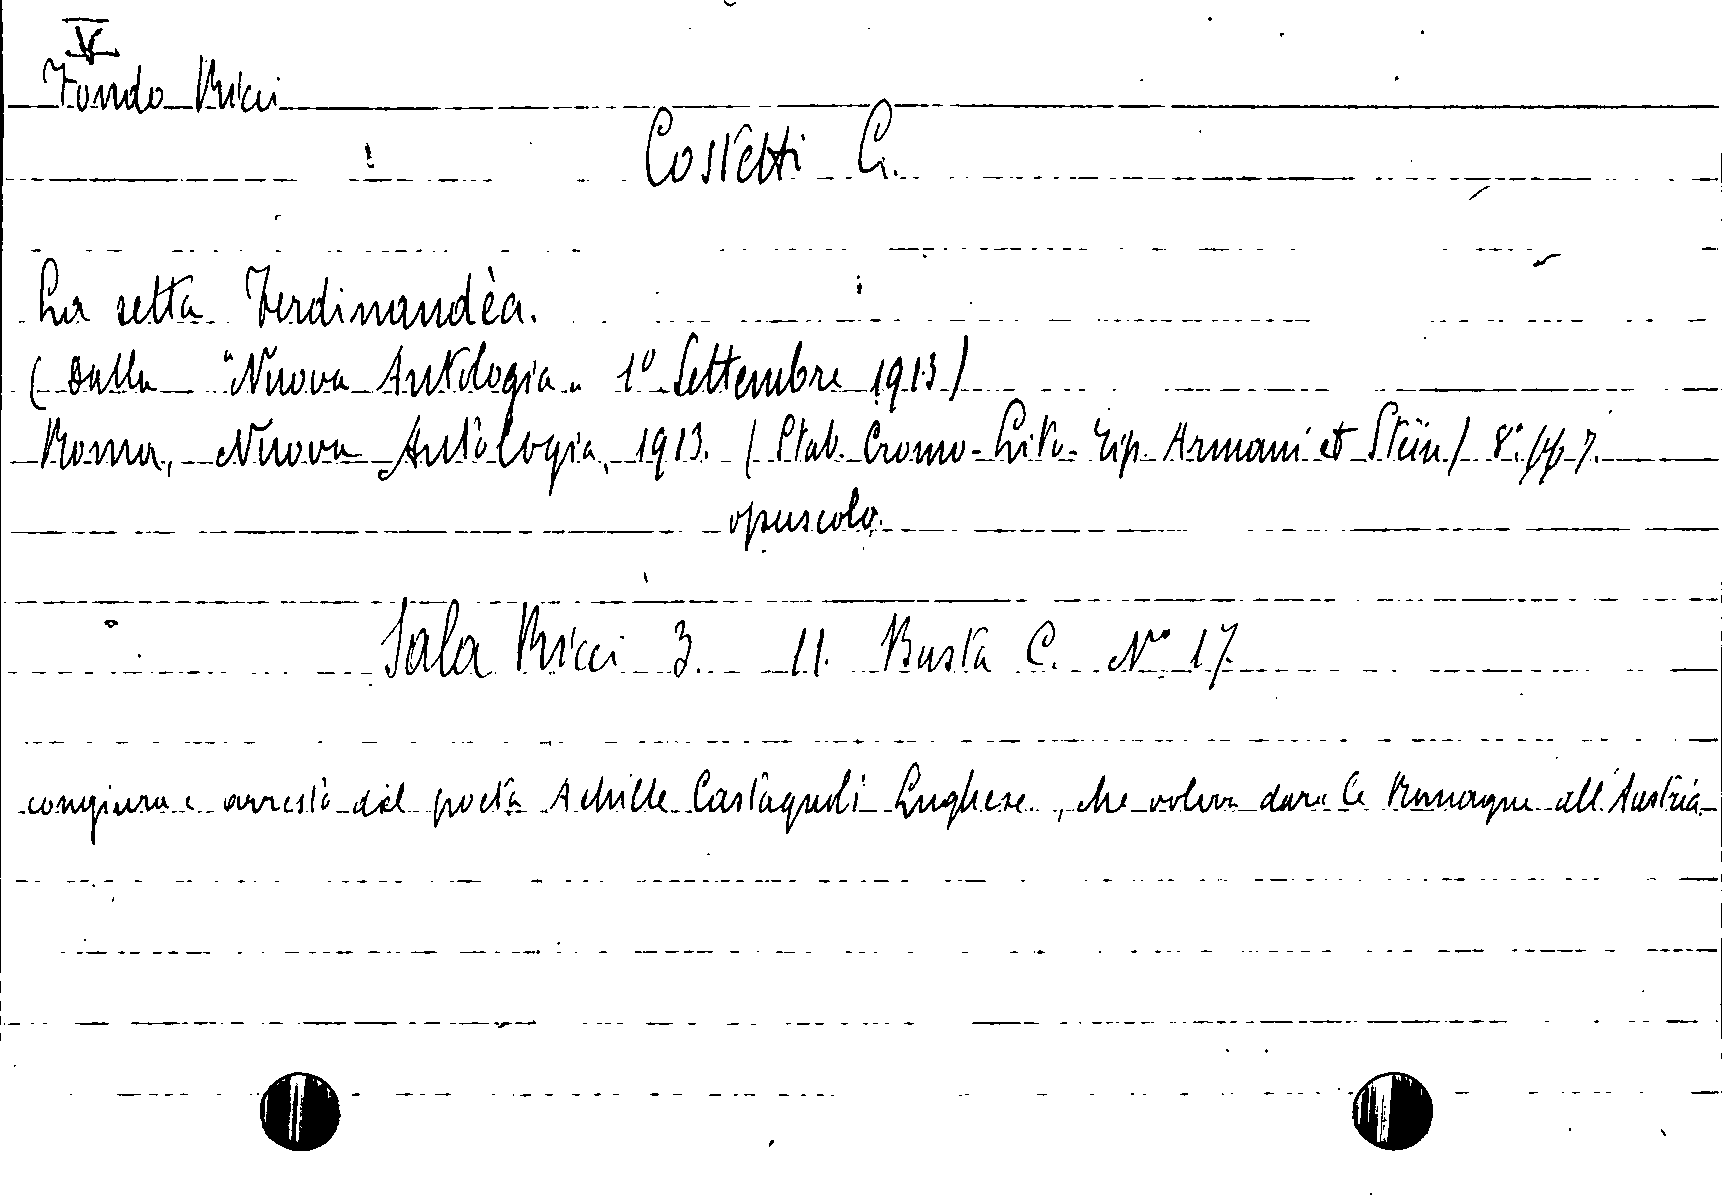 V
Fondo Ricci
Costetti G.
La setta Ferdinandèa.
(Dalla "Nuova Antologia" 1º Settembre 1913)
Roma, Nuova Antologia, 1913. (Stab. Cromo-Lito-Tip. Armani et Stein) 8º. pp. 7.
opuscolo.
Sala Ricci 3. 11. Busta C. Nº 17.
congiura e arresto del poeta Achille Castagnoli Lughese, che voleva dare le Romagne all'Austria.